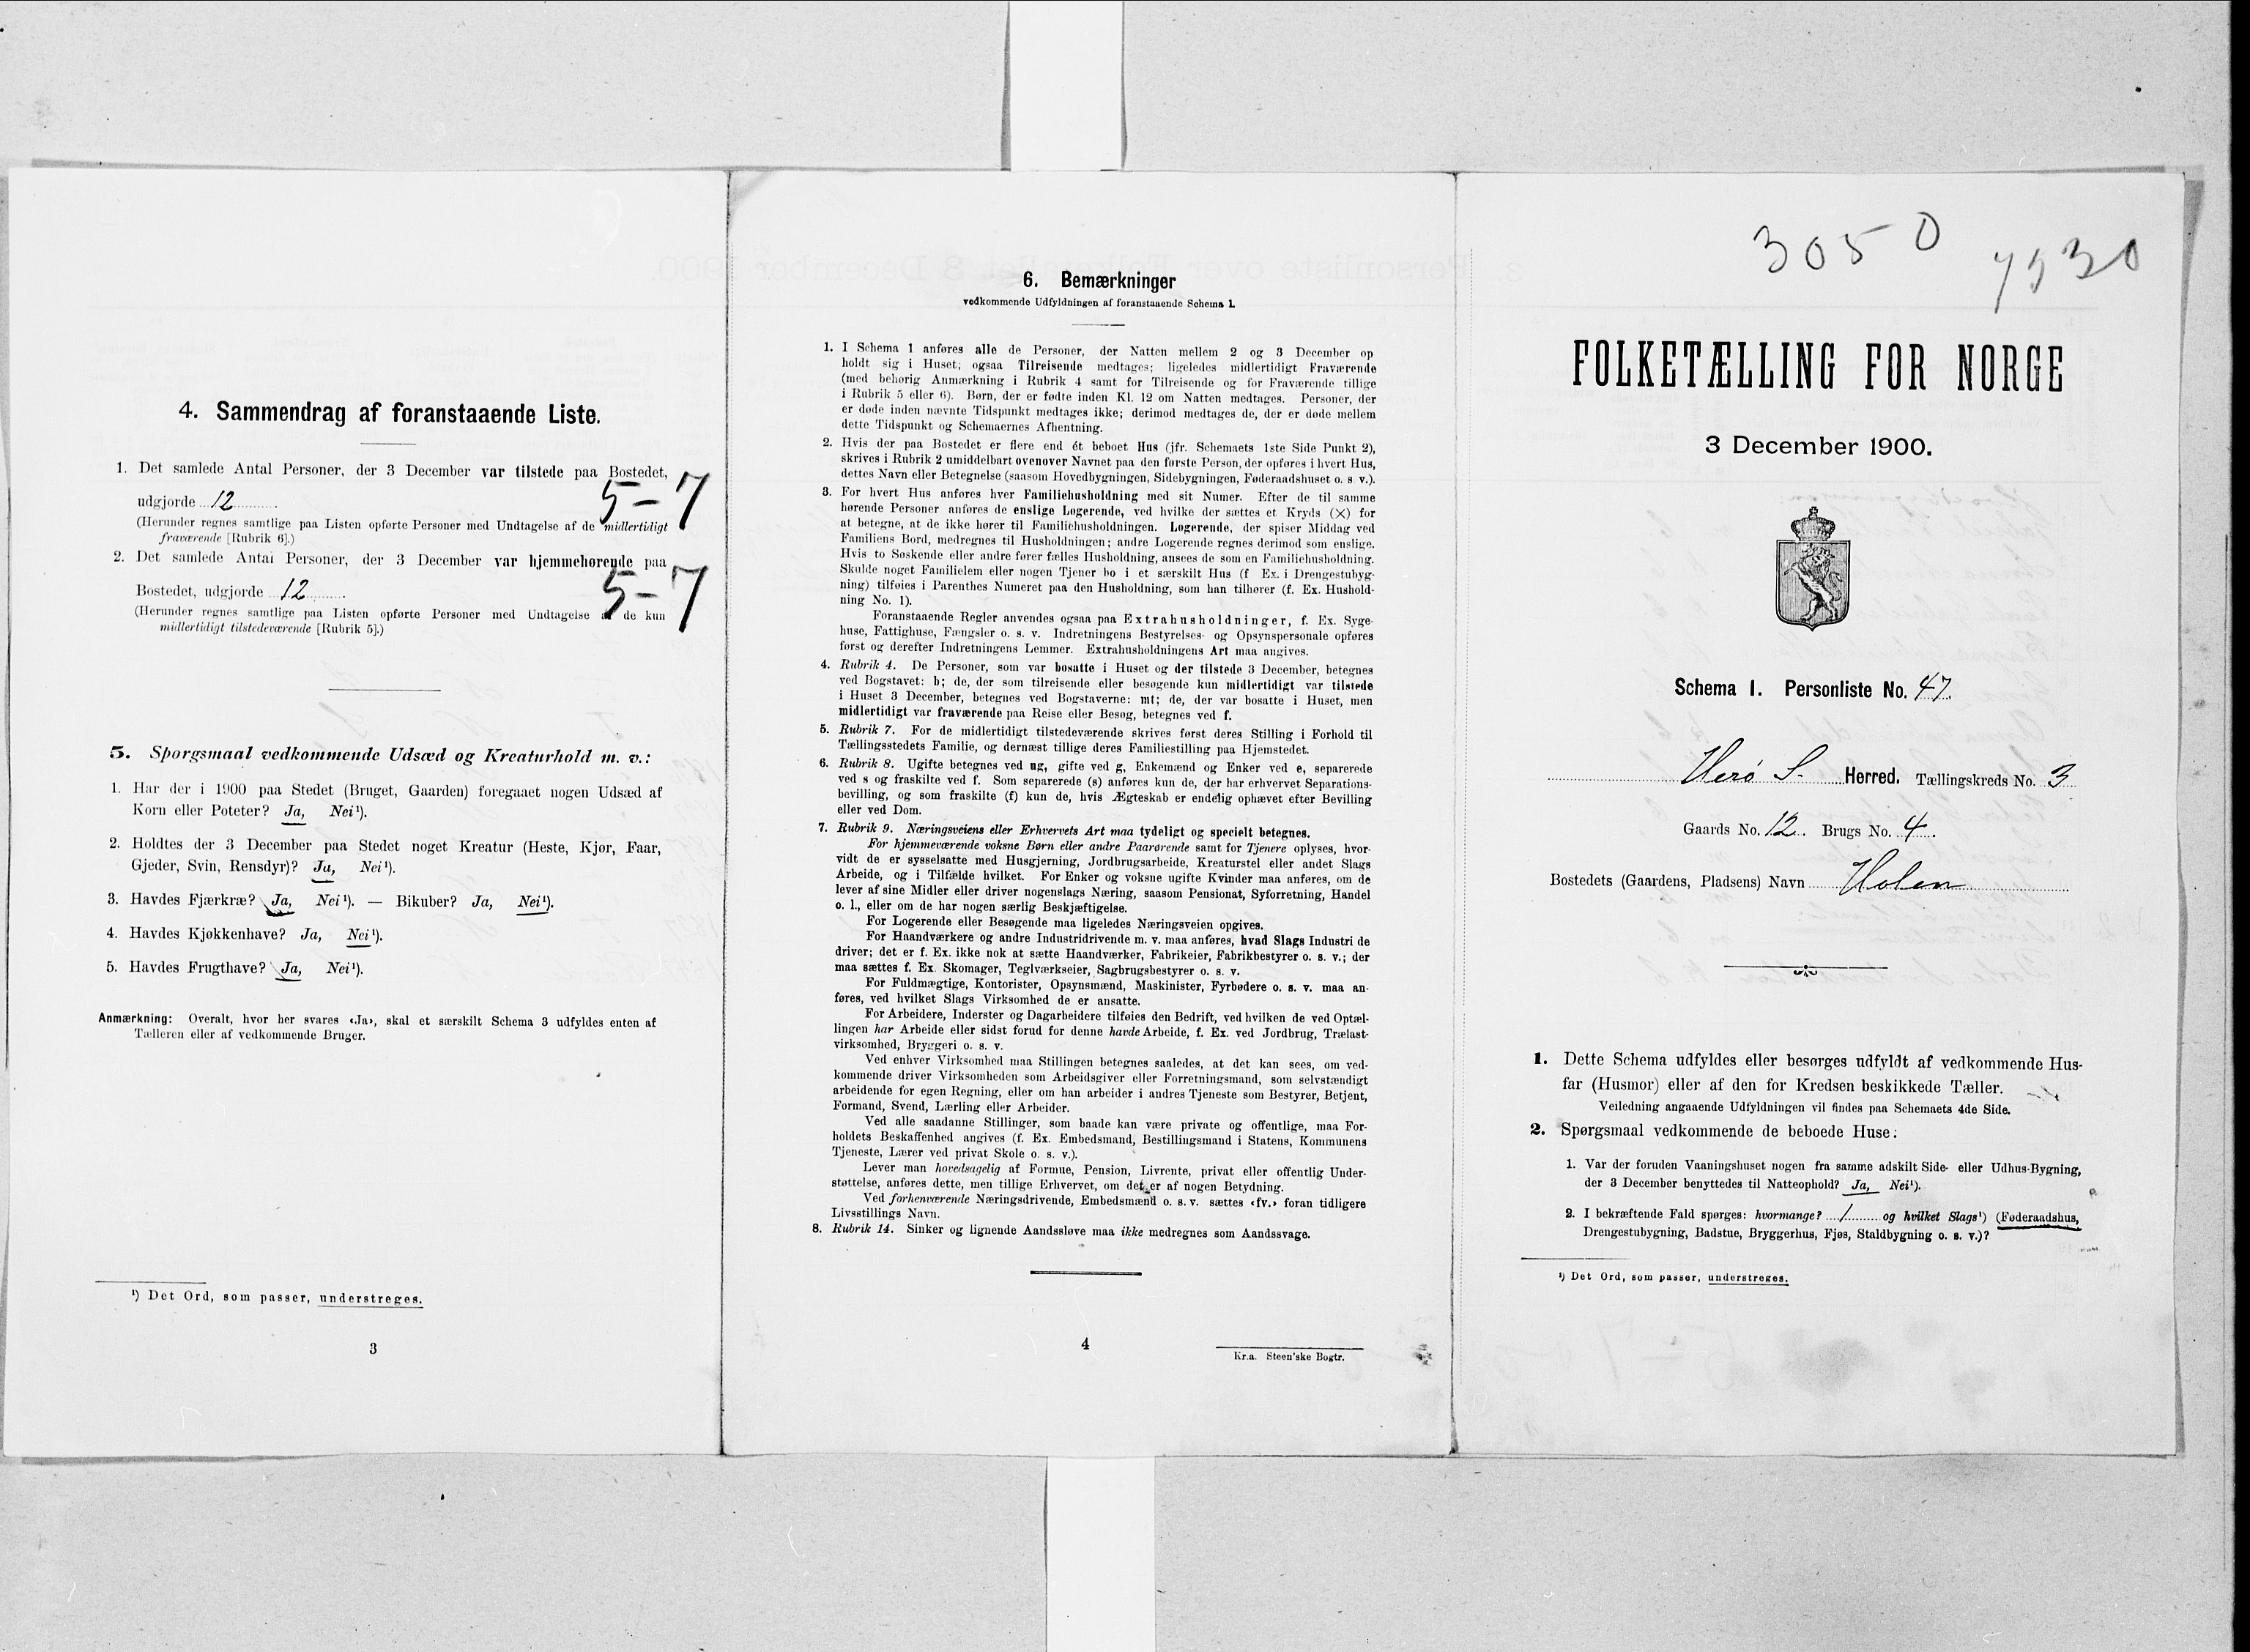 4. Sammendrag af foranstaaende Liste.
1. Det samlede Antal Personer, der 3 December var tilstede paa Bostedet,
udgjorde 12 5-7
(Herunder regnes samtlige paa Listen opførte Personer med Undtagelse af de midlertidigt
fraværende [Rubrik 6].)
2. Det samlede Antal Personer, der 3 December var hjemmehørende paa
Bostedet, udgjorde 12 5-7
(Herunder regnes samtlige paa Listen opførte Personer med Undtagelse af de kun
midlertidigt tilstedeværende [Rubrik 5].)
5. Spørgsmaal vedkommende Udsæd og Kreaturhold m. v.:
1. Har der i 1900 paa Stedet (Bruget, Gaarden) foregaaet nogen Udsæd af
Korn eller Poteter? Ja, Nei¹).
2. Holdtes der 3 December paa Stedet noget Kreatur (Heste, Kjør, Faar,
Gjeder, Svin, Rensdyr)? Ja, Nei¹).
3. Havdes Fjærkræ? Ja, Nei¹). — Bikuber? Ja, Nei¹).
4. Havdes Kjøkkenhave? Ja, Nei¹).
5. Havdes Frugthave? Ja, Nei¹).
Anmærkning: Overalt, hvor her svares «Ja», skal et særskilt Schema 3 udfyldes enten af
Tælleren eller af vedkommende Bruger.
¹) Det Ord, som passer, understreges.
3
6. Bemærkninger
vedkommende Udfyldningen af foranstaaende Schema 1.
1. I Schema 1 anføres alle de Personer, der Natten mellem 2 og 3 December op
holdt sig i Huset; ogsaa Tilreisende medtages; ligeledes midlertidigt Fraværende
(med behørig Anmærkning i Rubrik 4 samt for Tilreisende og for Fraværende tillige
i Rubrik 5 eller 6). Børn, der er fødte inden Kl. 12 om Natten medtages. Personer, der
er døde inden nævnte Tidspunkt medtages ikke; derimod medtages de, der er døde mellem
dette Tidspunkt og Schemaernes Afhentning.
2. Hvis der paa Bostedet er flere end ét beboet Hus (jfr. Schemaets 1ste Side Punkt 2),
skrives i Rubrik 2 umiddelbart ovenover Navnet paa den første Person, der opføres i hvert Hus,
dettes Navn eller Betegnelse (saasom Hovedbygningen, Sidebygningen, Føderaadshuset o. s. v.).
3. For hvert Hus anføres hver Familiehusholdning med sit Numer. Efter de til samme
hørende Personer anføres de enslige Logerende, ved hvilke der sættes et Kryds (×) for
at betegne, at de ikke hører til Familiehusholdningen. Logerende, der spiser Middag ved
Familiens Bord, medregnes til Husholdningen; andre Logerende regnes derimod som enslige.
Hvis to Søskende eller andre fører fælles Husholdning, ansees de som en Familiehusholdning.
Skulde noget Familielem eller nogen Tjener bo i et særskilt Hus (f. Ex. i Drengestubyg-
ning) tilføies i Parenthes Numeret paa den Husholdning, som han tilhører (f. Ex. Hushold-
ning No. 1).
Foranstaaende Regler anvendes ogsaa paa Extrahusholdninger, f. Ex. Syge-
huse, Fattighuse, Fængsler o. s. v. Indretningens Bestyrelses- og Opsynspersonale opføres
først og derefter Indretningens Lemmer. Extrahusholdningens Art maa angives.
4. Rubrik 4. De Personer, som var bosatte i Huset og der tilstede 3 December, betegnes
ved Bogstavet: b; de, der som tilreisende eller besøgende kun midlertidigt var tilstede
i Huset 3 December, betegnes ved Bogstaverne: mt; de, der var bosatte i Huset, men
midlertidigt var fraværende paa Reise eller Besøg, betegnes ved f.
5. Rubrik 7. For de midlertidigt tilstedeværende skrives først deres Stilling i Forhold til
Tællingsstedets Familie, og dernæst tillige deres Familiestilling paa Hjemstedet.
6. Rubrik 8. Ugifte betegnes ved ug, gifte ved g, Enkemænd og Enker ved e, separerede
ved s og fraskilte ved f. Som separerede (s) anføres kun de, der har erhvervet Separations-
bevilling, og som fraskilte (f) kun de, hvis Ægteskab er endelig ophævet efter Bevilling
eller ved Dom.
7. Rubrik 9. Næringsveiens eller Erhvervets Art maa tydeligt og specielt betegnes.
For hjemmeværende voksne Børn eller andre Paarørende samt for Tjenere oplyses, hvor-
vidt de er sysselsatte med Husgjerning, Jordbrugsarbeide, Kreaturstel eller andet Slags
Arbeide, og i Tilfælde hvilket. For Enker og voksne ugifte Kvinder maa anføres, om de
lever af sine Midler eller driver nogenslags Næring, saasom Pensionat, Syforretning, Handel
o. l., eller om de har nogen særlig Beskjæftigelse.
For Logerende eller Besøgende maa ligeledes Næringsveien opgives.
For Haandværkere og andre Industridrivende m. v. maa anføres, hvad Slags Industri de
driver; det er f. Ex. ikke nok at sætte Haandværker, Fabrikeier, Fabrikbestyrer o. s. v.; der
maa sættes f. Ex. Skomager, Teglværkseier, Sagbrugsbestyrer o. s. v.
For Fuldmægtige, Kontorister, Opsynsmænd, Maskinister, Fyrbødere o. s. v. maa an-
føres, ved hvilket Slags Virksomhed de er ansatte.
For Arbeidere, Inderster og Dagarbeidere tilføies den Bedrift, ved hvilken de ved Optæl-
lingen har Arbeide eller sidst forud for denne havde Arbeide, f. Ex. ved Jordbrug, Trælast-
virksomhed, Bryggeri o. s. v.
Ved enhver Virksomhed maa Stillingen betegnes saaledes, at det kan sees, om ved-
kommende driver Virksomheden som Arbeidsgiver eller Forretningsmand, som selvstændigt
arbeidende for egen Regning, eller om han arbeider i andres Tjeneste som Bestyrer, Betjent,
Formand, Svend, Lærling eller Arbeider.
Ved alle saadanne Stillinger, som baade kan være private og offentlige, maa For-
holdets Beskaffenhed angives (f. Ex. Embedsmand, Bestillingsmand i Statens, Kommunens
Tjeneste, Lærer ved privat Skole o. s. v.).
Lever man hovedsagelig af Formue, Pension, Livrente, privat eller offentlig Under-
støttelse, anføres dette, men tillige Erhvervet, om det er af nogen Betydning.
Ved forhenværende Næringsdrivende, Embedsmænd o. s. v. sættes «fv.» foran tidligere
Livsstillings Navn.
8. Rubrik 14. Sinker og lignende Aandssløve maa ikke medregnes som Aandssvage.
4
Kr.a. Steen'ske Bogtr.
3050
7530
FOLKETÆLLING FOR NORGE
3 December 1900.
Schema 1. Personliste No. 47.
Herø S. Herred. Tællingskreds No. 3
Gaards No. 12. Brugs No. 4.
Bostedets (Gaardens, Pladsens) Navn Holen
1. Dette Schema udfyldes eller besørges udfyldt af vedkommende Hus-
far (Husmor) eller af den for Kredsen beskikkede Tæller.
Veiledning angaaende Udfyldningen vil findes paa Schemaets 4de Side.
2. Spørgsmaal vedkommende de beboede Huse:
1. Var der foruden Vaaningshuset nogen fra samme adskilt Side- eller Udhus-Bygning,
der 3 December benyttedes til Natteophold? Ja, Nei¹).
2. I bekræftende Fald spørges: hvormange? 1 og hvilket Slags¹) (Føderaadshus,
Drengestubygning, Badstue, Bryggerhus, Fjøs, Staldbygning o. s. v.)?
¹) Det Ord, som passer, understreges.